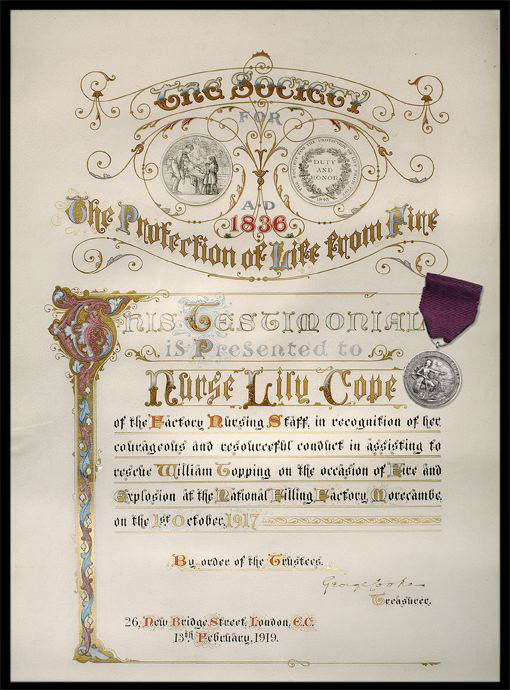 The Society
FOR
DUTY
AND
HONOR
A·D
1836
The Protection of Life from Fire
This Testimonial
is Presented to
Nurse Lily Cope
of the Factory Nursing Staff, in recognition of her
courageous and resourceful conduct in assisting to
rescue William Topping on the occasion of Fire and
Explosion at the National Filling Factory, Morecambe,
on the 1st October, 1917
By order of the Trustees.
Treasurer,
26, New Bridge Street, London, E.C.
13th February, 1919.